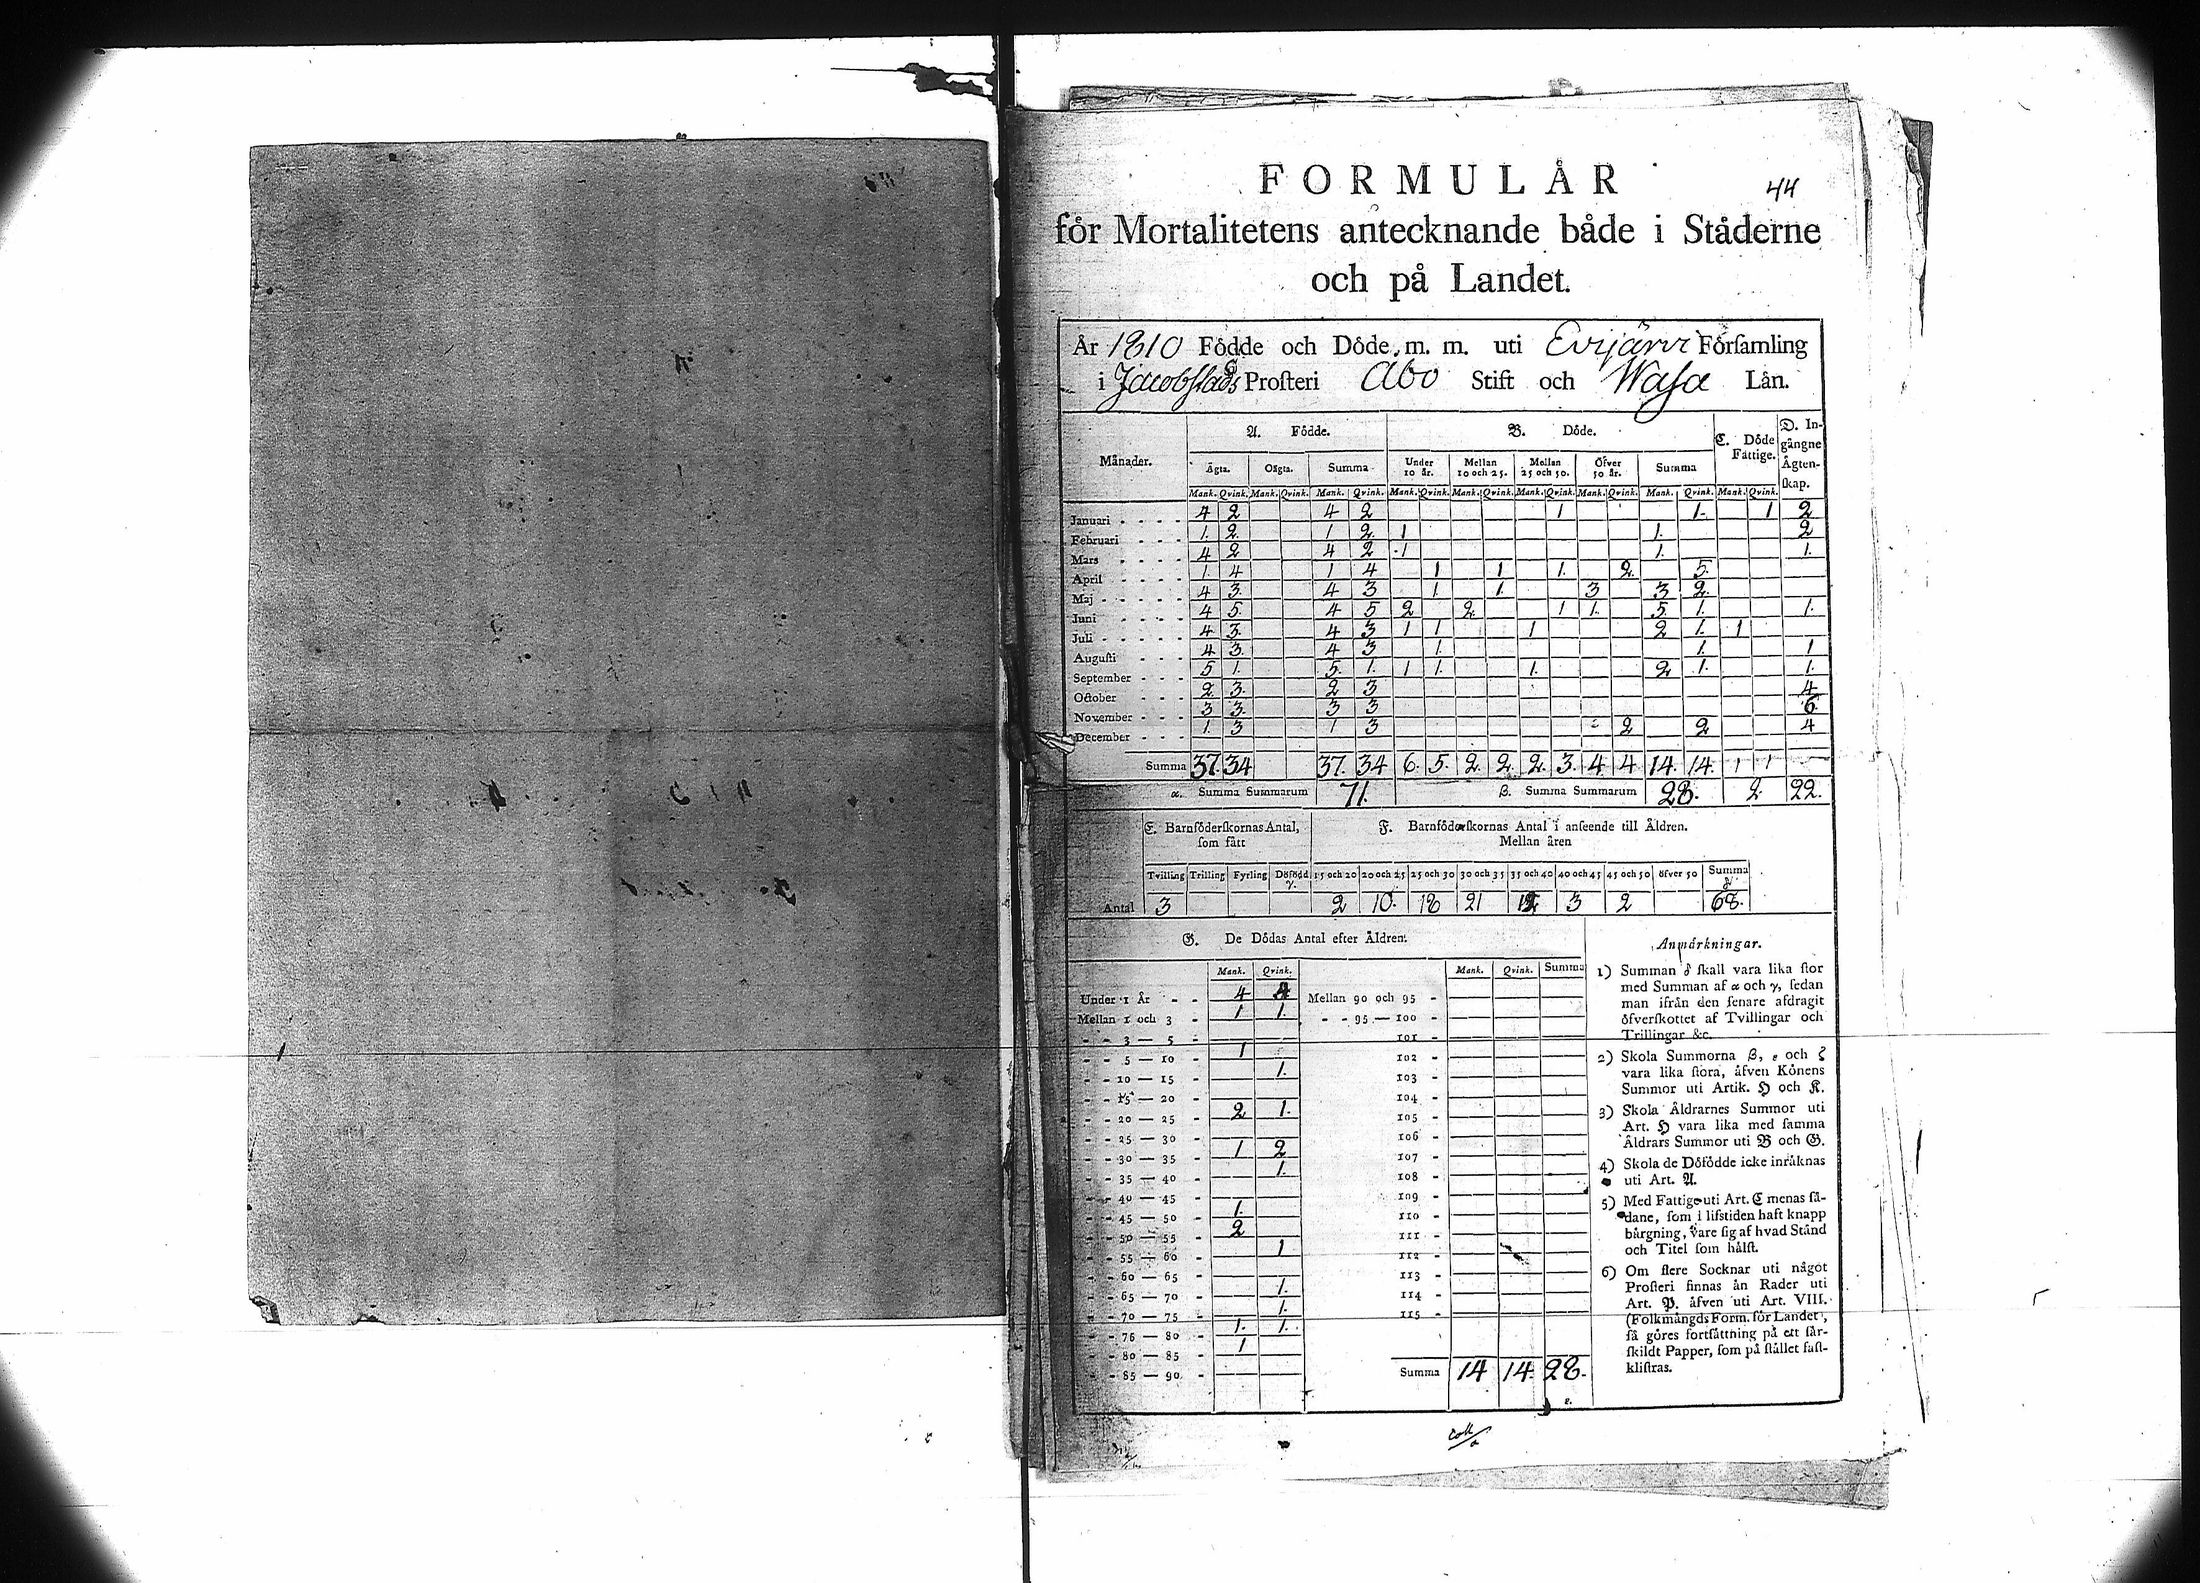 FORMULÅR
44
för Mortalitetens antecknande både i Ståderne
och på Landet.
År 1810 Födde och Döde, m. m. uti Evijärvi Församling
i Jacobstads Prosteri Åbo Stift och Wasa Lån.
Månader. A. Födde. B. Döde. C. Döde Fattige. D. Ingångne Ågtenskap.
Ågta. Oågta. Summa Under 10 år. Mellan 10 och 25. Mellan 25 och 50. Öfver 50 år. Summa
Mank. Qvink. Mank. Qvink. Mank. Qvink. Mank. Qvink. Mank. Qvink. Mank. Qvink. Mank. Qvink. Mank. Qvink. Mank. Qvink.
Januari 4 2 4 2 1 1. 1 2
Februari 1. 2. 1 2. 1 1. 2
Mars 4 2 4 2 1 1. 1.
April 1. 4 1 4 1 1 1. 2. 5.
Maj 4 3. 4 3 1. 1. 3 3 2.
Juni 4 5. 4 5 2 2. 1 1. 5. 1. 1.
Juli 4 3. 4 3 1 1 1 2 1. 1
Augusti 4 3. 4 3 1. 1. 1
September 5 1. 5. 1. 1 1. 1. 2 1. 1.
October 2. 3. 2 3 4
November 3 3. 3 3 6.
December 1. 3 1 3 2 2 4
Summa 37. 34 37. 34 6. 5. 2. 2. 2. 3. 4 4 14. 14. 1 1
α. Summa Summarum 71. β. Summa Summarum 28. 2. 22.
E. Barnföderskornas Antal, som fått
F. Barnföderskornas Antal i anseende till Åldren.
Mellan åren
Tvilling Trilling Fyrling Döfödd γ. 15 och 20 20 och 25 25 och 30 30 och 35 35 och 40 40 och 45 45 och 50 öfver 50 Summa δ
Antal 3 2 10. 18 21 12 3 2 68.
G. De Dödas Antal efter Åldren.
Mank. Qvink. Mank. Qvink. Summa
Under 1 År - - 4 4 Mellan 90 och 95 -
Mellan 1 och 3 - 1 1. - - 95 — 100 -
- - 3 — 5 - 101 -
- - 5 — 10 - 1 102 -
- - 10 — 15 - 1. 103 -
- - 15 — 20 - 104 -
- - 20 — 25 - 2 1. 105 -
- - 25 — 30 - 106 -
- - 30 — 35 - 1 2 107 -
- - 35 — 40 - 1. 108 -
- - 40 — 45 - 109 -
- - 45 — 50 - 1. 110 -
- - 50 — 55 - 2 111 -
- - 55 — 60 - 1 112 -
- - 60 — 65 - 113 -
- - 65 — 70 - 1. 114 -
- - 70 — 75 - 1. 115 -
- - 76 — 80 - 1. 1.
- - 80 — 85 - 1
- - 85 — 90 -
Summa 14 14. 28.
ε.
Anmärkningar.
1) Summan δ skall vara lika stor
med Summan af α och γ, sedan
man ifrån den senare afdragit
öfverskottet af Tvillingar och
Trillingar &c.
2) Skola Summorna β, ε och ζ
vara lika stora, åfven Könens
Summor uti Artik. H och K.
3) Skola Åldrarnes Summor uti
Art. H vara lika med samma
Åldrars Summor uti B och G.
4) Skola de Döfödde icke inräknas
uti Art. A.
5) Med Fattige uti Art. C menas så-
dane, som i lifstiden haft knapp
bärgning, vare sig af hvad Stånd
och Titel som hålst.
6) Om flere Socknar uti något
Prosteri finnas än Rader uti
Art. P. åfven uti Art. VIII.
(Folkmängds Form. för Landet,
så göres fortsåttning på ett sår-
skildt Papper, som på stället fast-
klistras.